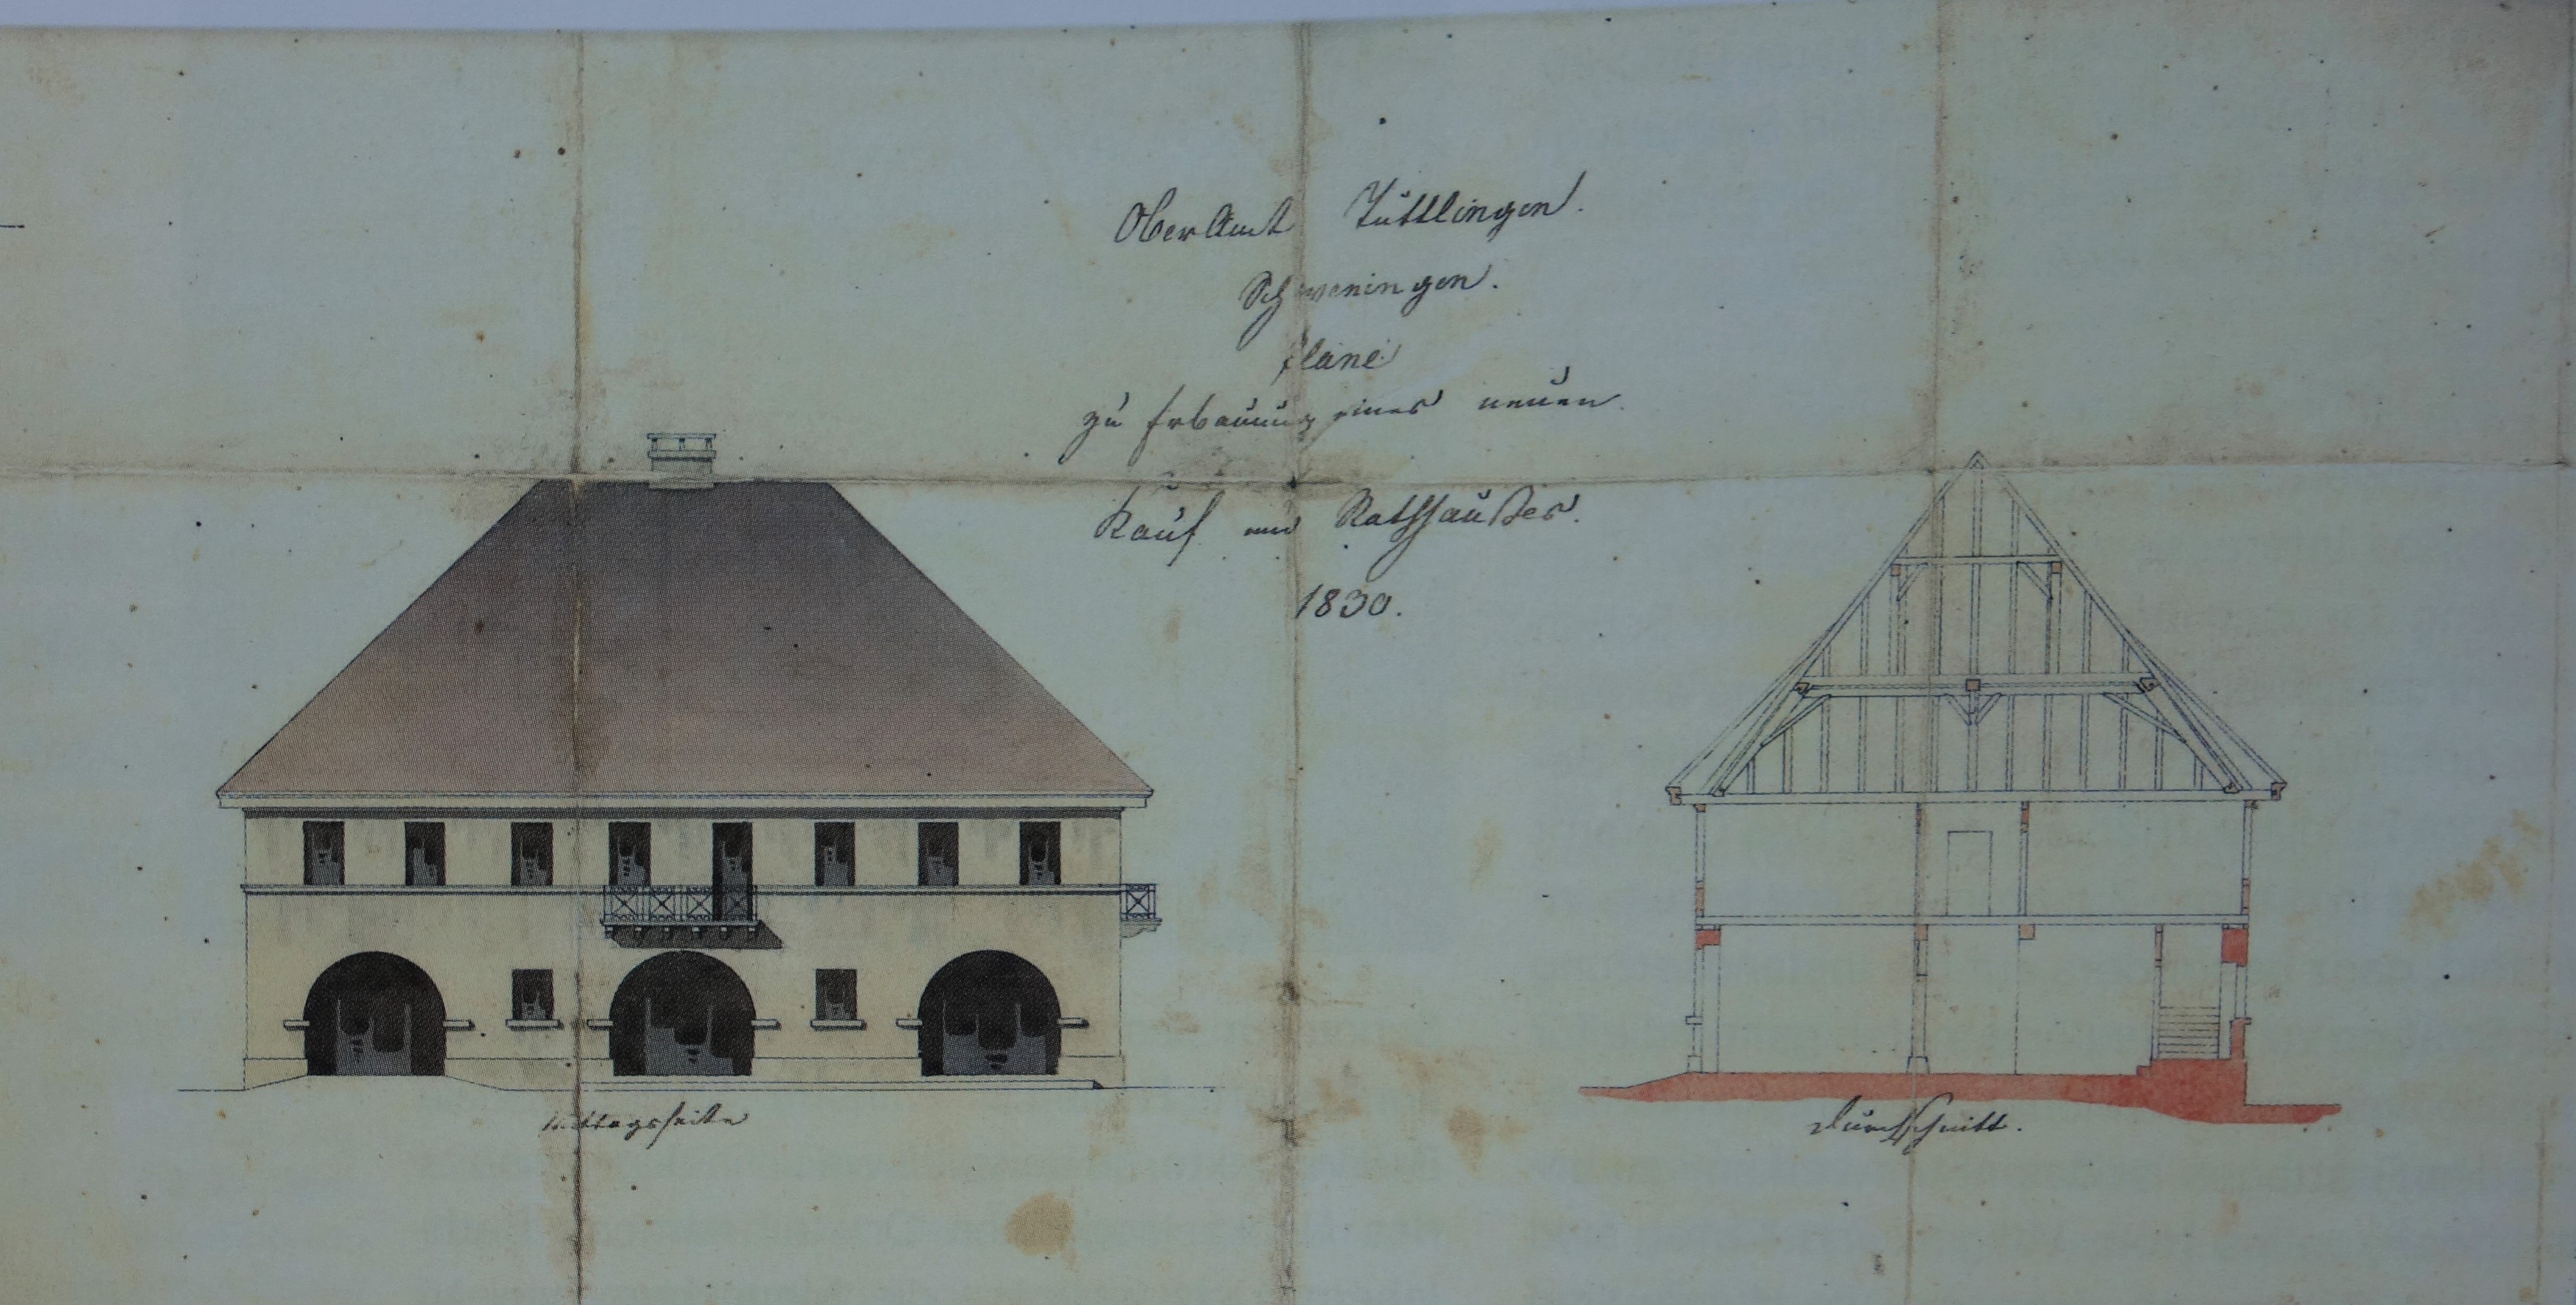 OberAmt Tuttlingen.
Schweningen.
Plane
zu Erbauung eines neuen
Kauf und Rathhaußes.
1830.
Mittagsseite
Durchschnitt.